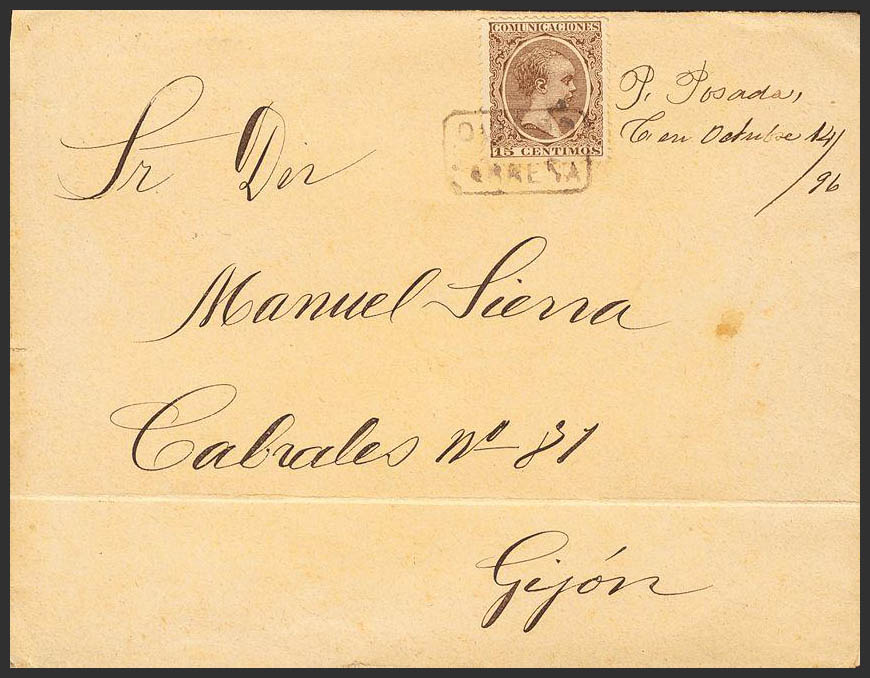 COMUNICACIONES
15 CENTIMOS
P. Posada,
C en Octubre 14/
/96
Sr Dn
Manuel Sierra
Cabrales Nº 31
Gijón